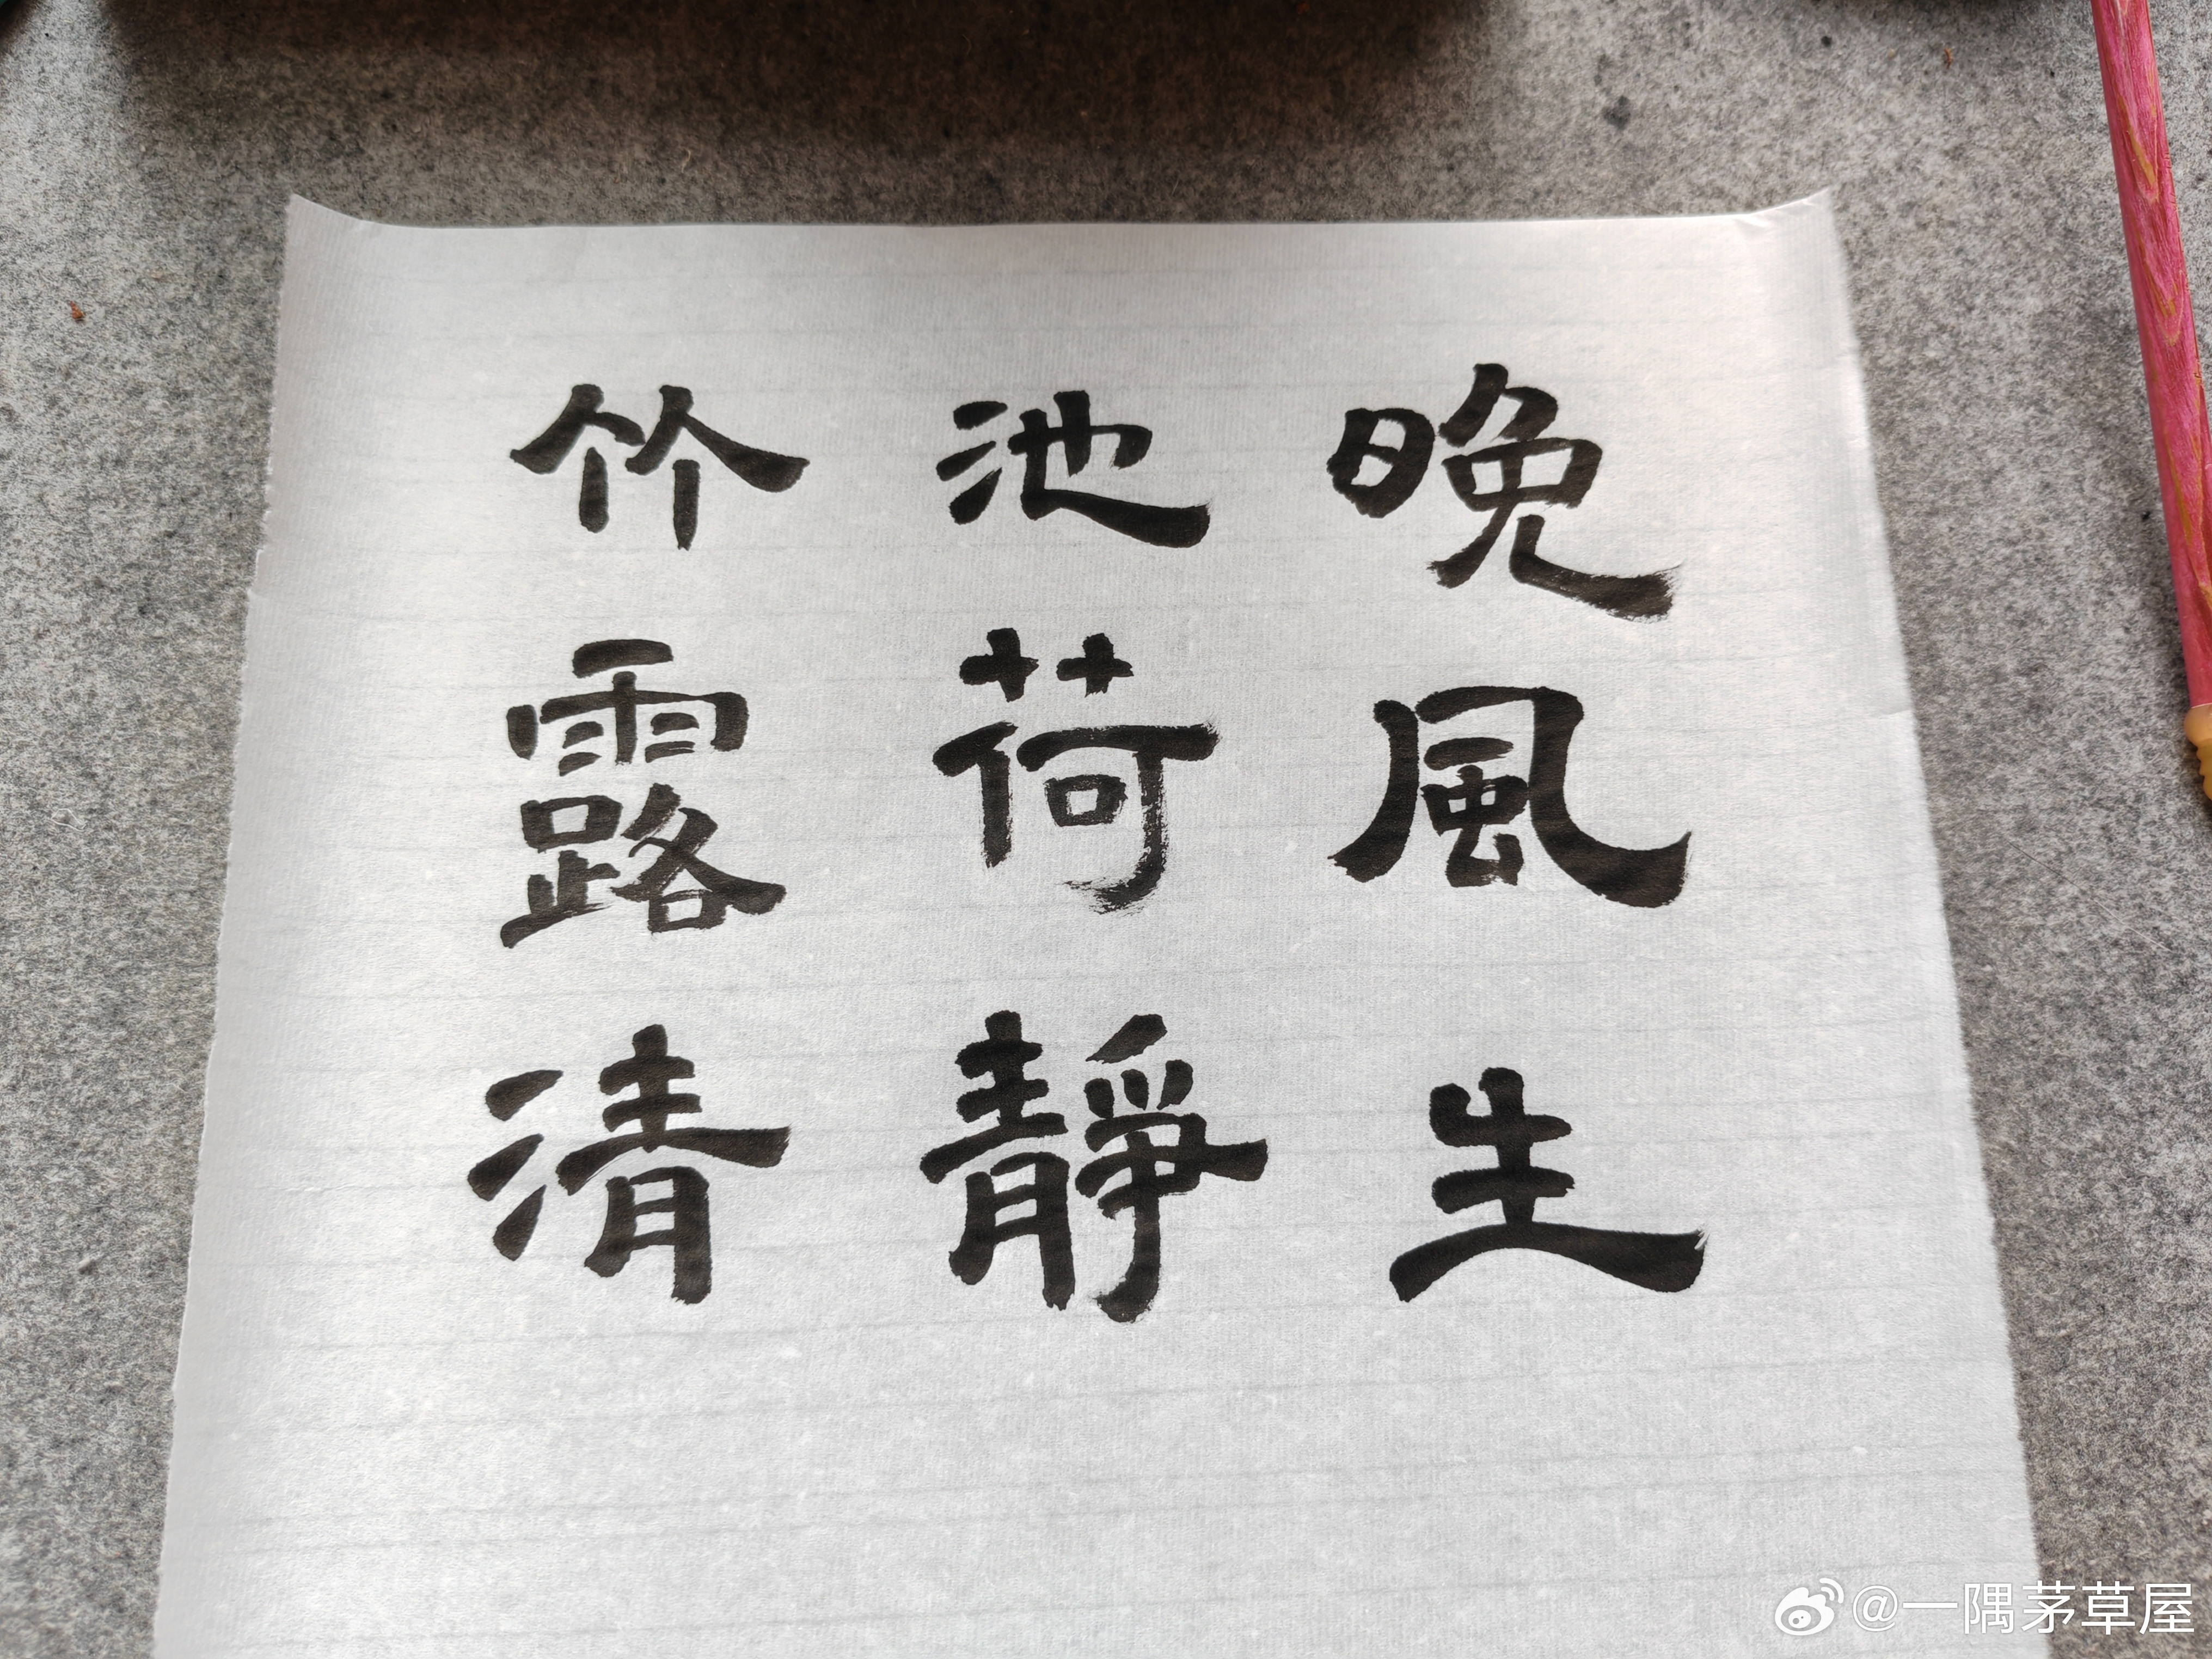 晚風生
池荷靜
竹露清
@一隅茅草屋